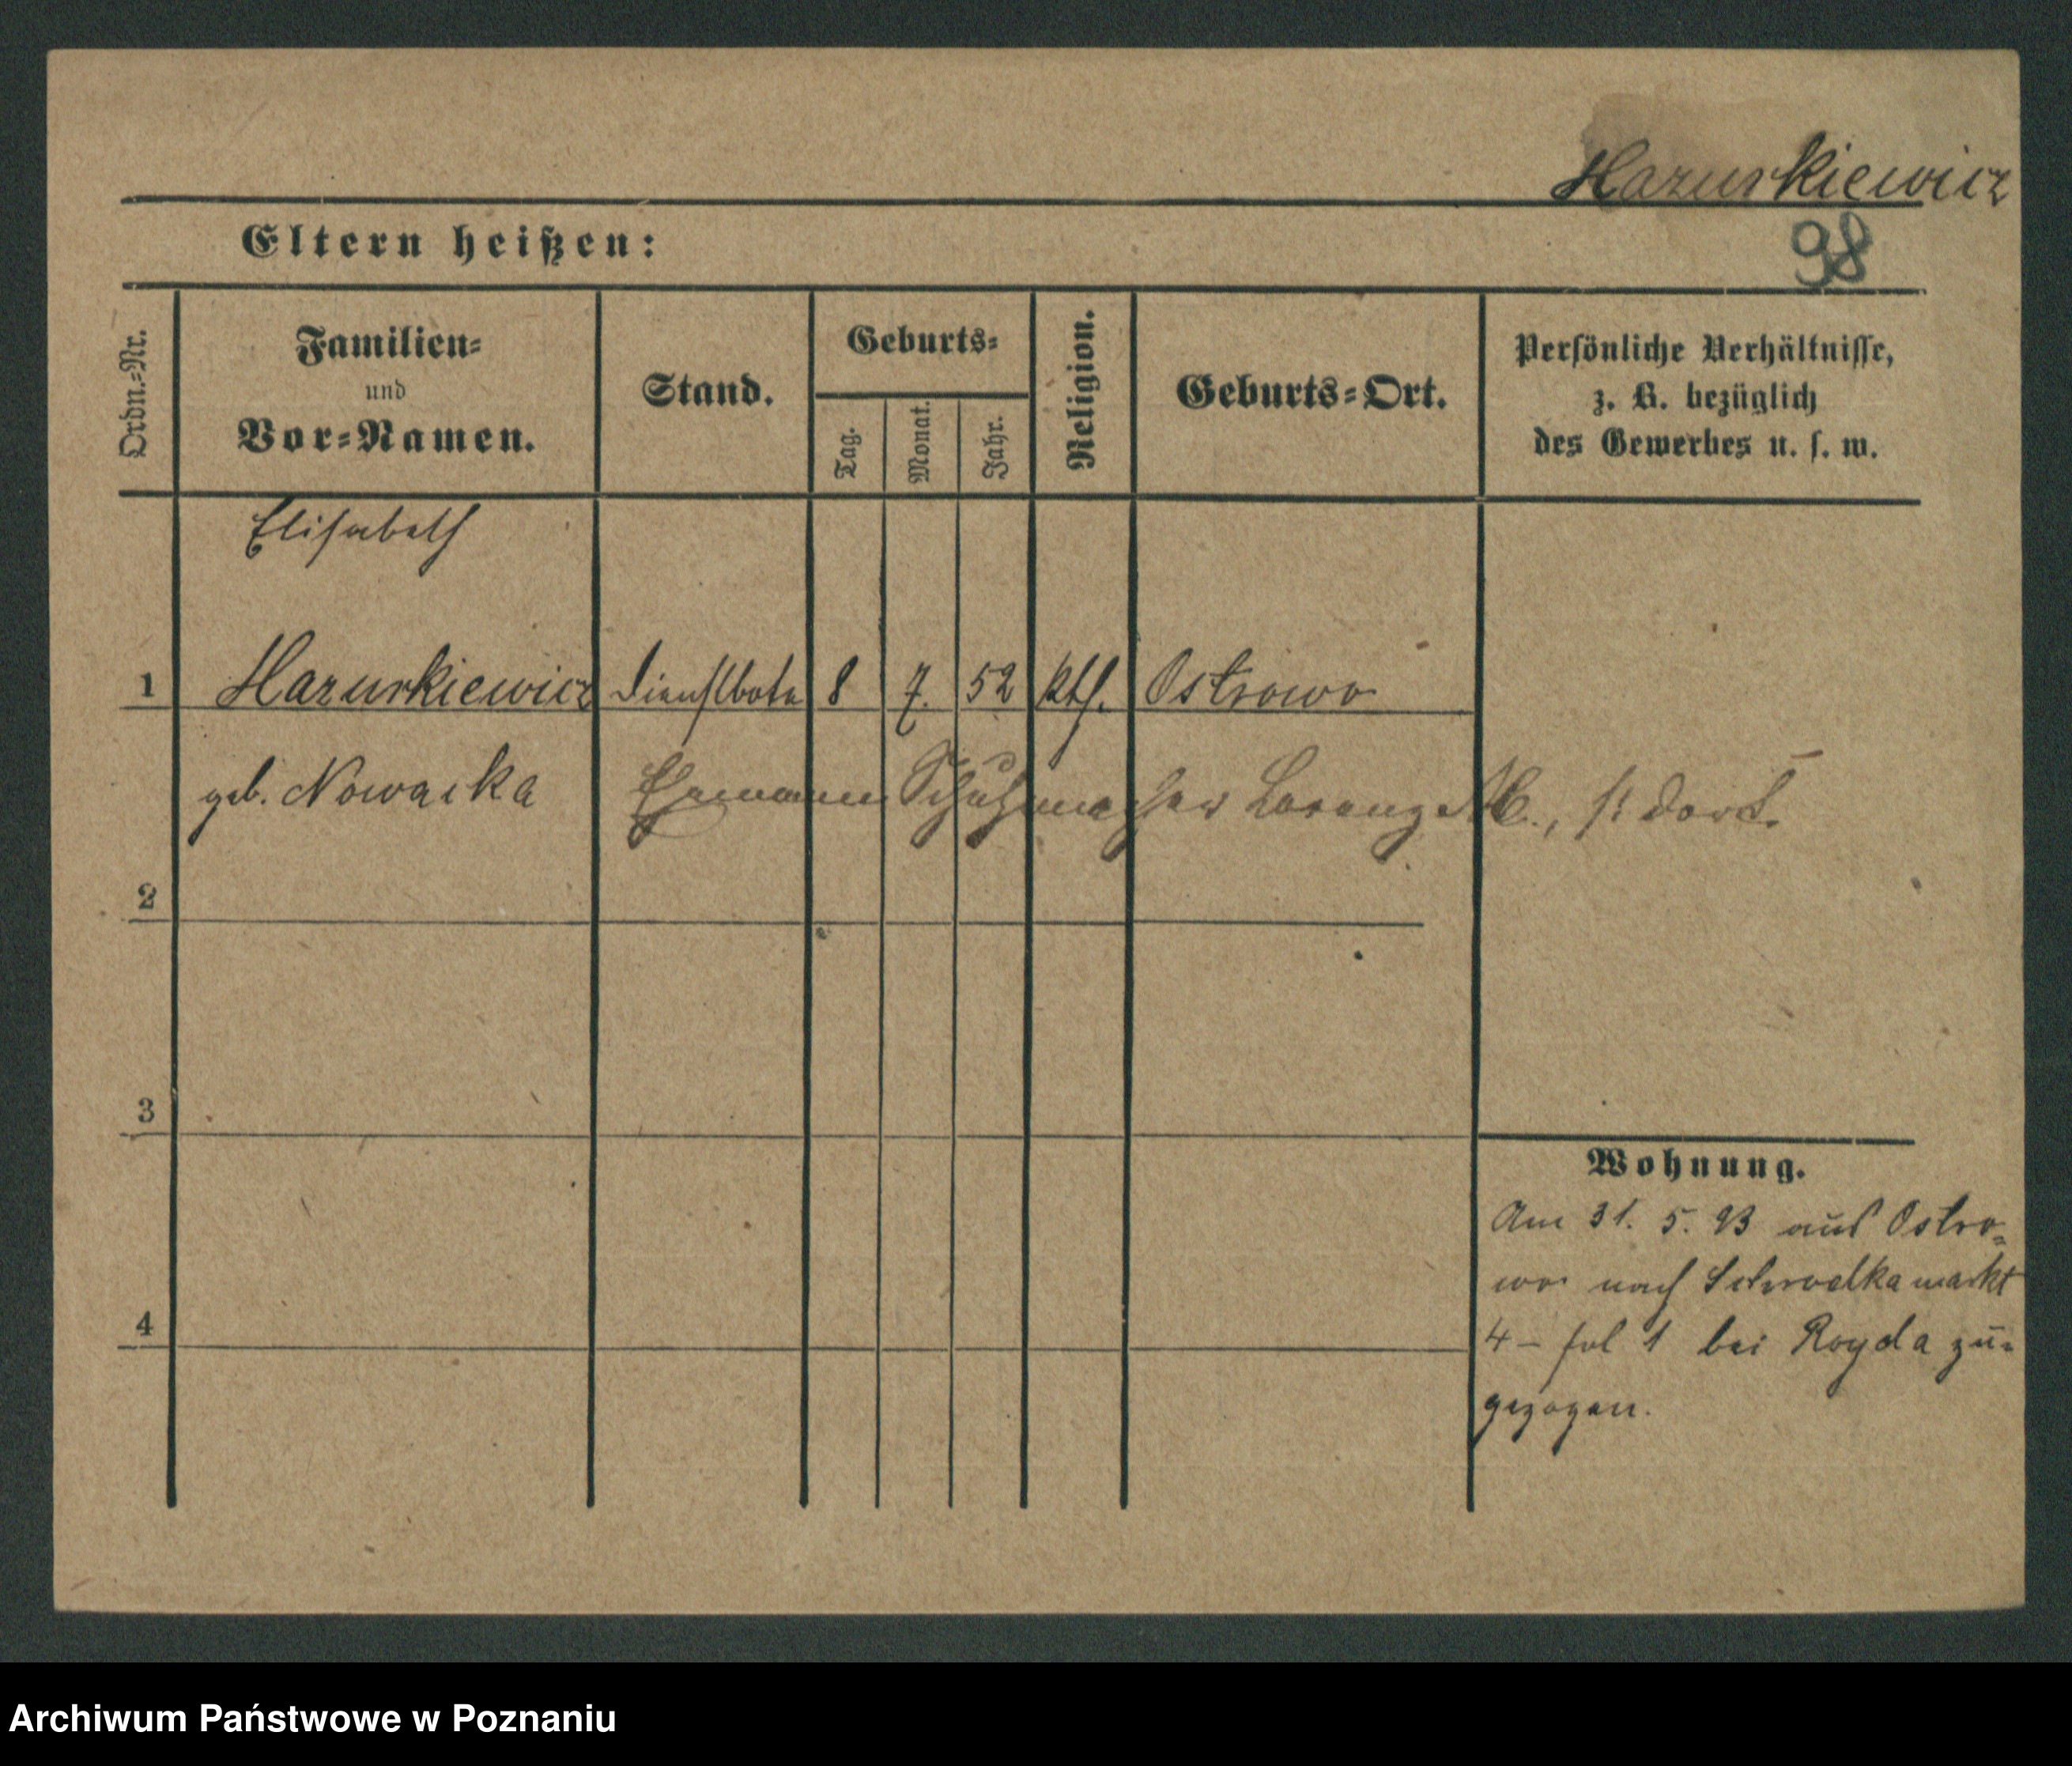 Mazurkiewicz
Eltern heißen:
98
Ordn.-Nr.
Familien-
und
Vor-Namen.
Stand.
Geburts-
Tag.
Monat.
Jahr.
Religion.
Geburts-Ort.
Persönliche Verhältnisse,
z. B. bezüglich
des Gewerbes u. s. w.
Elisabeth
1 Mazurkiewicz Dienstbote 8 7. 52 kth. Ostrowo
geb. Nowacka Ehemann Schuhmacher Lorenz M., ist dort.
2
3
Wohnung.
Am 31. 5. 93 aus Ostro-
wo nach Schrodkamarkt
4
4 – fol 1 bei Royda zu-
gezogen.
Archiwum Państwowe w Poznaniu